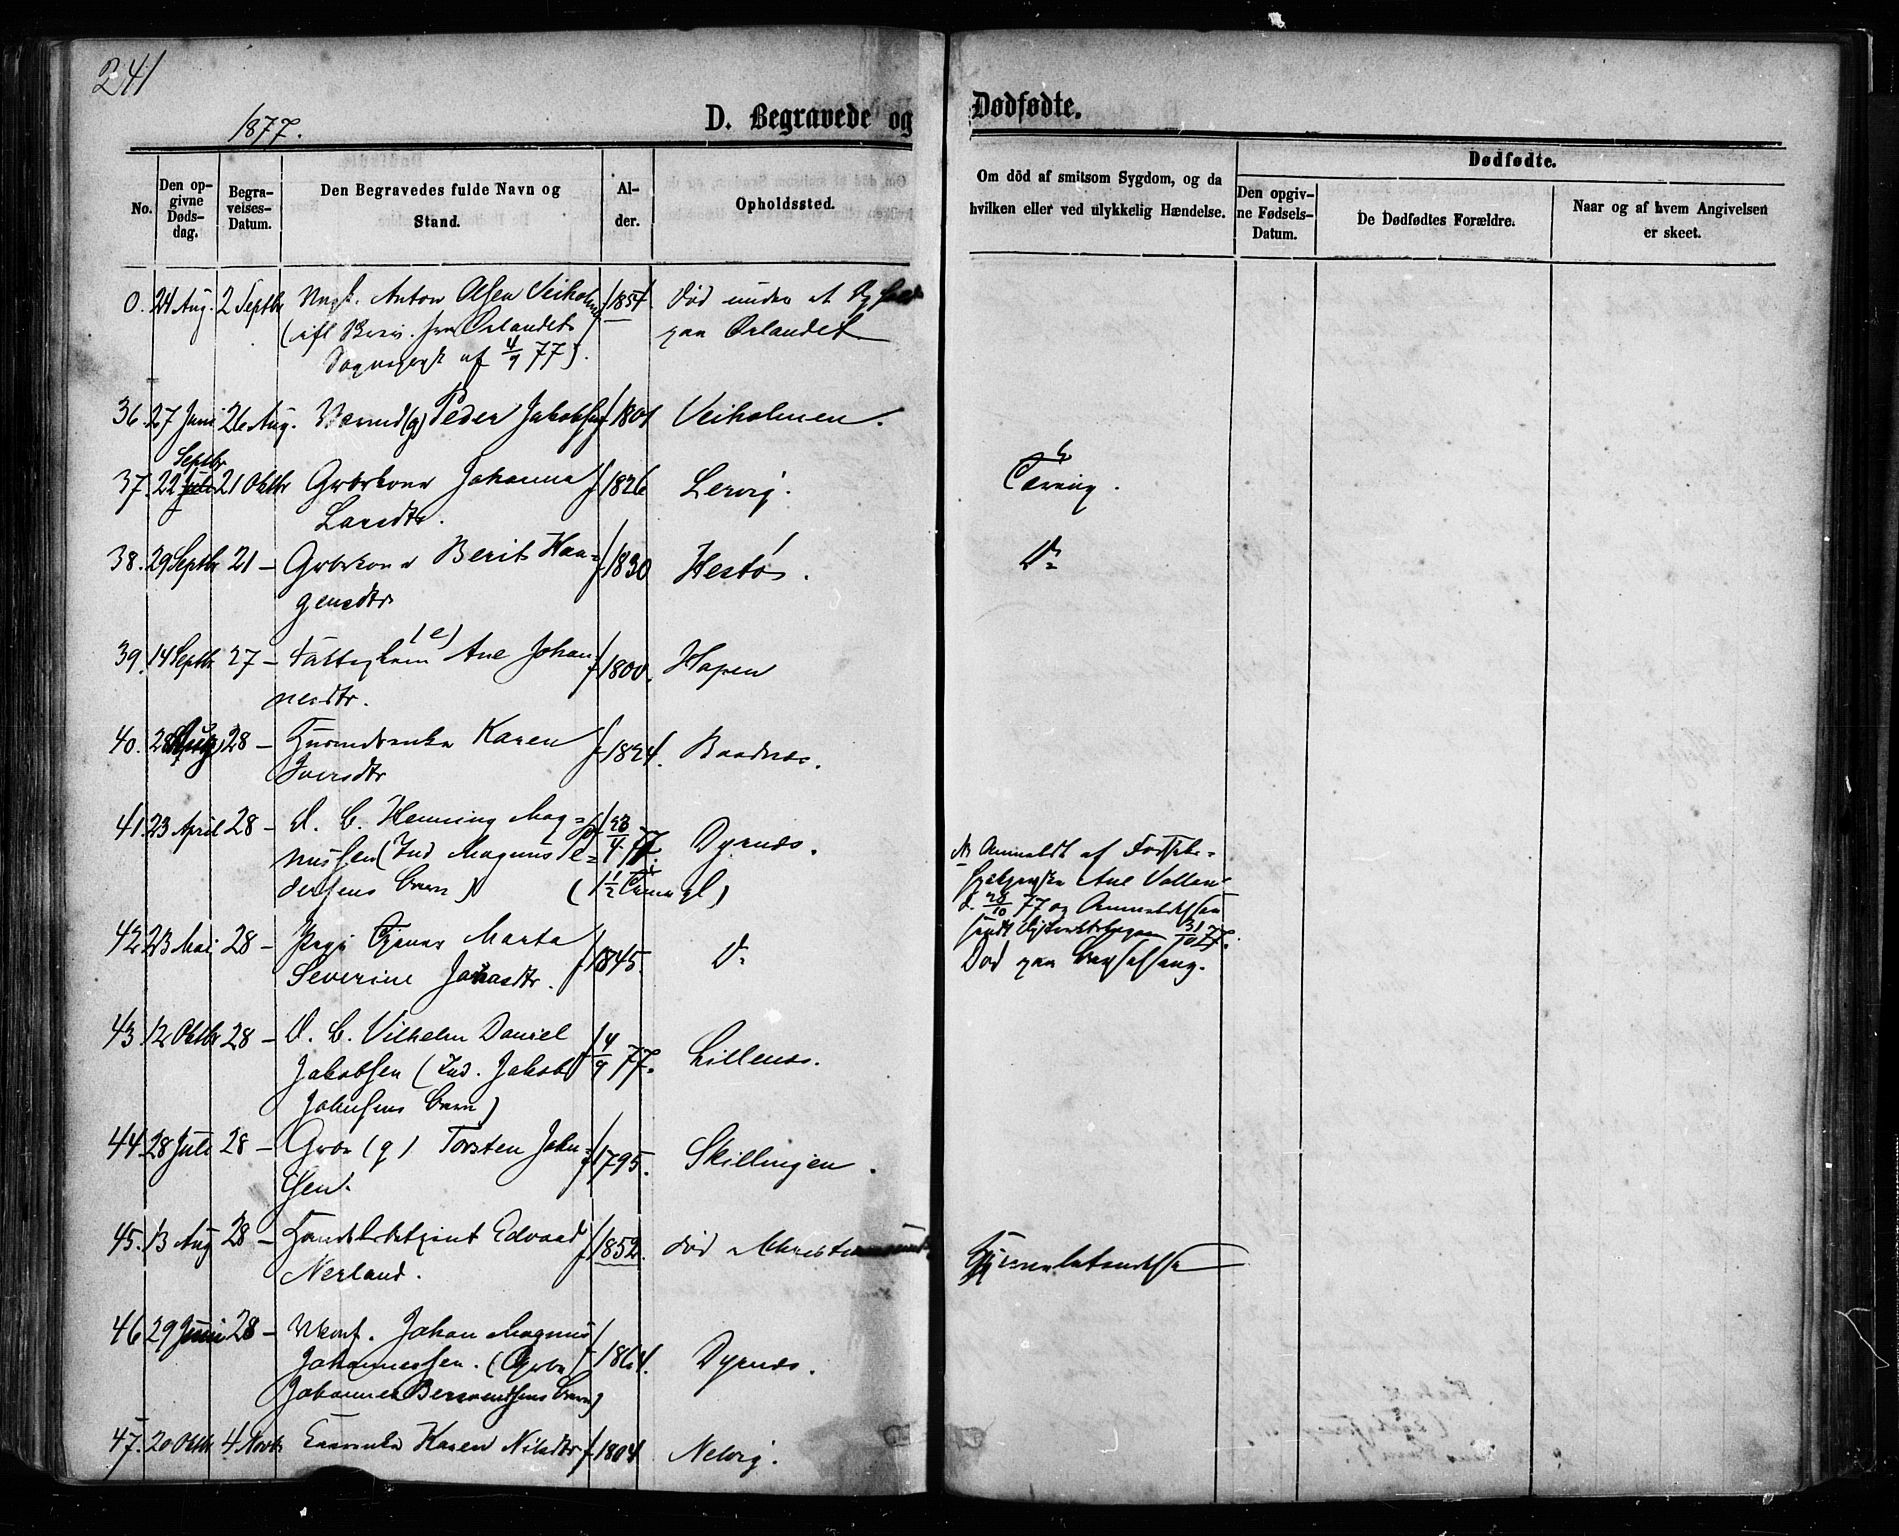 241
1877.
D. Begravede og Dødfødte.
No.
Den opgivne Dødsdag.
Begravelses-Datum.
Den Begravedes fulde Navn og Stand.
Alder.
Opholdssted.
Om död af smitsom Sygdom, og da hvilken eller ved ulykkelig Hændelse.
Dødfødte.
Den opgivne Fødsels-Datum.
De Dødfødtes Forældre.
Naar og af hvem Angivelsen er skeet.
0. 24 Aug. 2 Septbr Ungk. Anton Olsen Veiholmen f 1854 død under et
(ifl. fra Ørlandets paa Ørlandet
af 4/9 77).
36. 27 Juni 26 Aug. (g) Peder Jakobsen f 1801 Veiholmen.
Septbr
37. 22 Juli 21 Oktbr Gbrkone Johanna f 1826 Lervig. Tæring.
Larsdtr.
38. 29 Septbr 21 – Gbrkone Berit Haa- f 1830 Hestø. Do
gensdtr
39. 14 Septbr 27 – Fattiglem (e) Ane Johan- f 1800. Hopen
nesdtr.
40. 28 28 – Karen f 1824. Baadnes.
Iversdtr
41. 23 April 28 – D. B. Henning Mag- f 23/4 77. Dyrnes. Anmeldt af
nussen (Ind. Magnus Pe- Ane
dersens Barn) (1 1/2 d. 28/10 77 og
31/10 77.
42. 23 Mai 28 – Pige Marta f 1845. Do Død paa Barselseng.
Severine Jonasdtr.
43. 12 Oktbr 28 – D. B. Vilhelm Daniel f 4/9 77. Lillenes.
Jakobsen (Ind. Jakob
Johnsens Barn)
44. 28 Juli 28 – Gbr (g) Torsten John- f 1795. Skillingen.
sen.
45. 13 Aug 28 – Handelsbetjent Edvard f 1852. død i Christianssund
Nerland.
46. 29 Juni 28 – Ukonf. Johan Magnus f 1864. Dyrnes.
Johannessen. (Gbr
Johannes Berntsens Barn)
47. 20 Oktbr 4 Novbr Karen Nilsdtr f 1804 Nelvig.